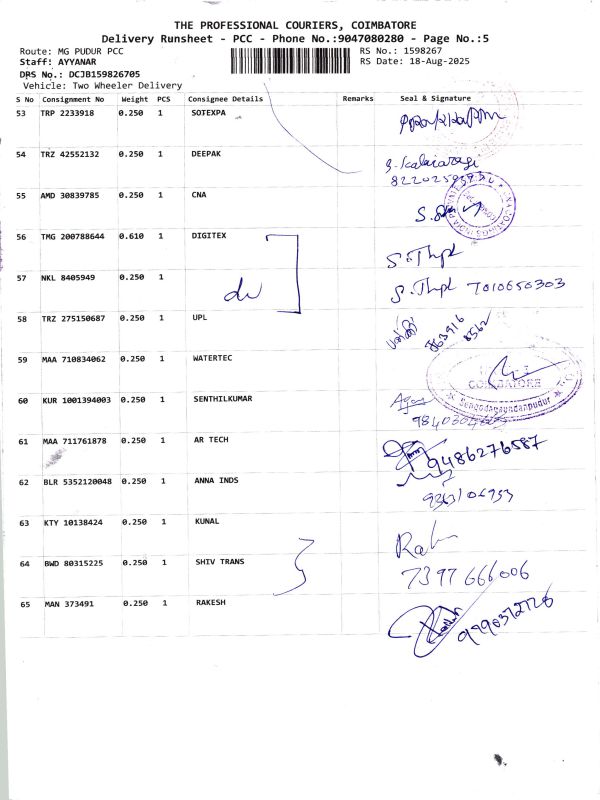 THE PROFESSIONAL COURIERS, COIMBATORE
Delivery Runsheet - PCC - Phone No.:9047080280 - Page No.:5
Route: MG PUDUR PCC RS No.: 1598267
Staff: AYYANAR RS Date: 18-Aug-2025
DRS No.: DCJB159826705
Vehicle: Two Wheeler Delivery
S No Consignment No Weight PCS Consignee Details Remarks Seal & Signature
53 TRP 2233918 0.250 1 SOTEXPA
54 TRZ 42552132 0.250 1 DEEPAK
55 AMD 30839785 0.250 1 CNA
56 TMG 200788644 0.610 1 DIGITEX
57 NKL 8405949 0.250 1 S.Thpl 7010650303
58 TRZ 275150687 0.250 1 UPL 863916 8562
59 MAA 710834062 0.250 1 WATERTEC
COIMBATORE
Sengodagoundanpudur
60 KUR 1001394003 0.250 1 SENTHILKUMAR
61 MAA 711761878 0.250 1 AR TECH 9486276587
62 BLR 5352120048 0.250 1 ANNA INDS
63 KTY 10138424 0.250 1 KUNAL
64 BWD 80315225 0.250 1 SHIV TRANS 7397666006
65 MAN 373491 0.250 1 RAKESH